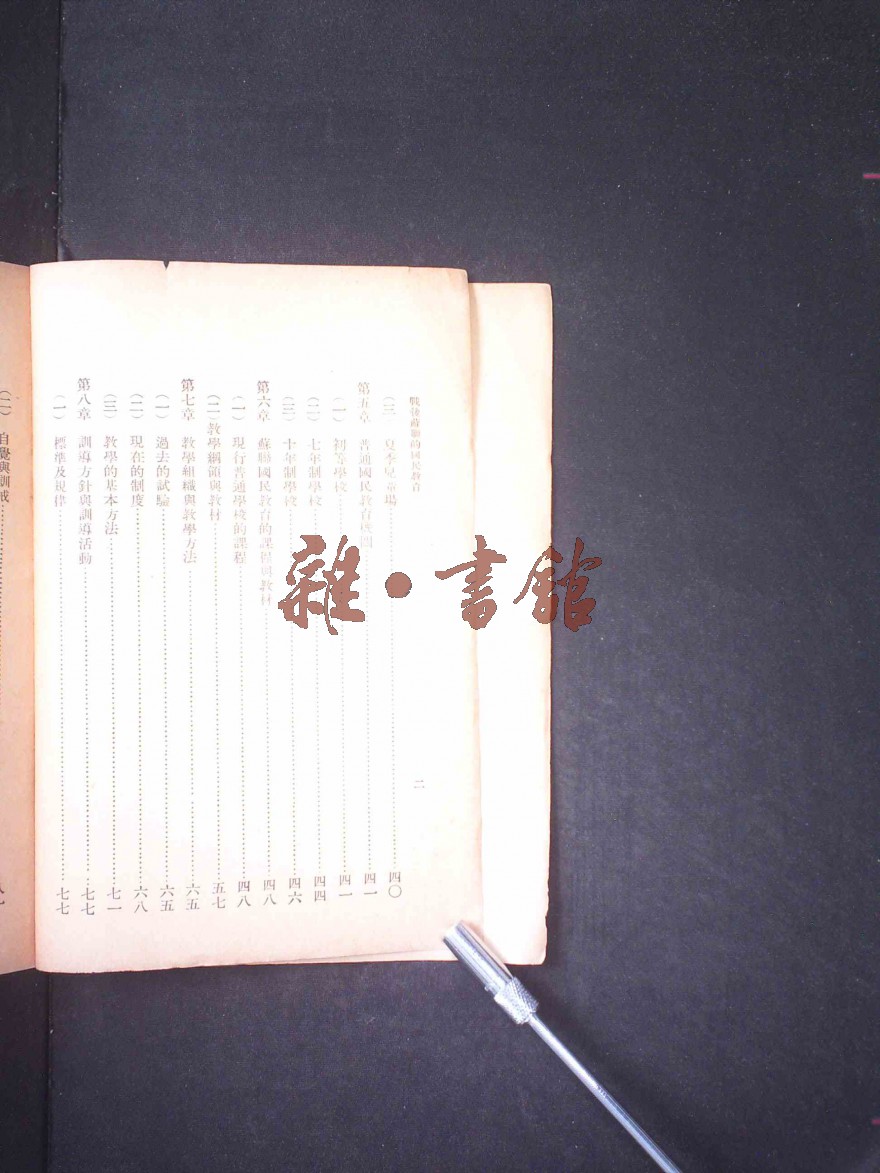 戰後蘇聯的國民教育
二
(三) 夏季兒童場……四〇
第五章 普通國民教育機關……四一
(一) 初等學校……四一
(二) 七年制學校……四四
(三) 十年制學校……四六
第六章 蘇聯國民教育的課程與教材……四八
(一) 現行普通學校的課程……四八
(二) 教學綱領與教材……五七
第七章 教學組織與教學方法……六五
(一) 過去的試驗……六五
(二) 現在的制度……六八
(三) 教學的基本方法……七一
第八章 訓導方針與訓導活動……七七
(一) 標準及規律……七七
(二) 自覺與訓戒……
雜·書館